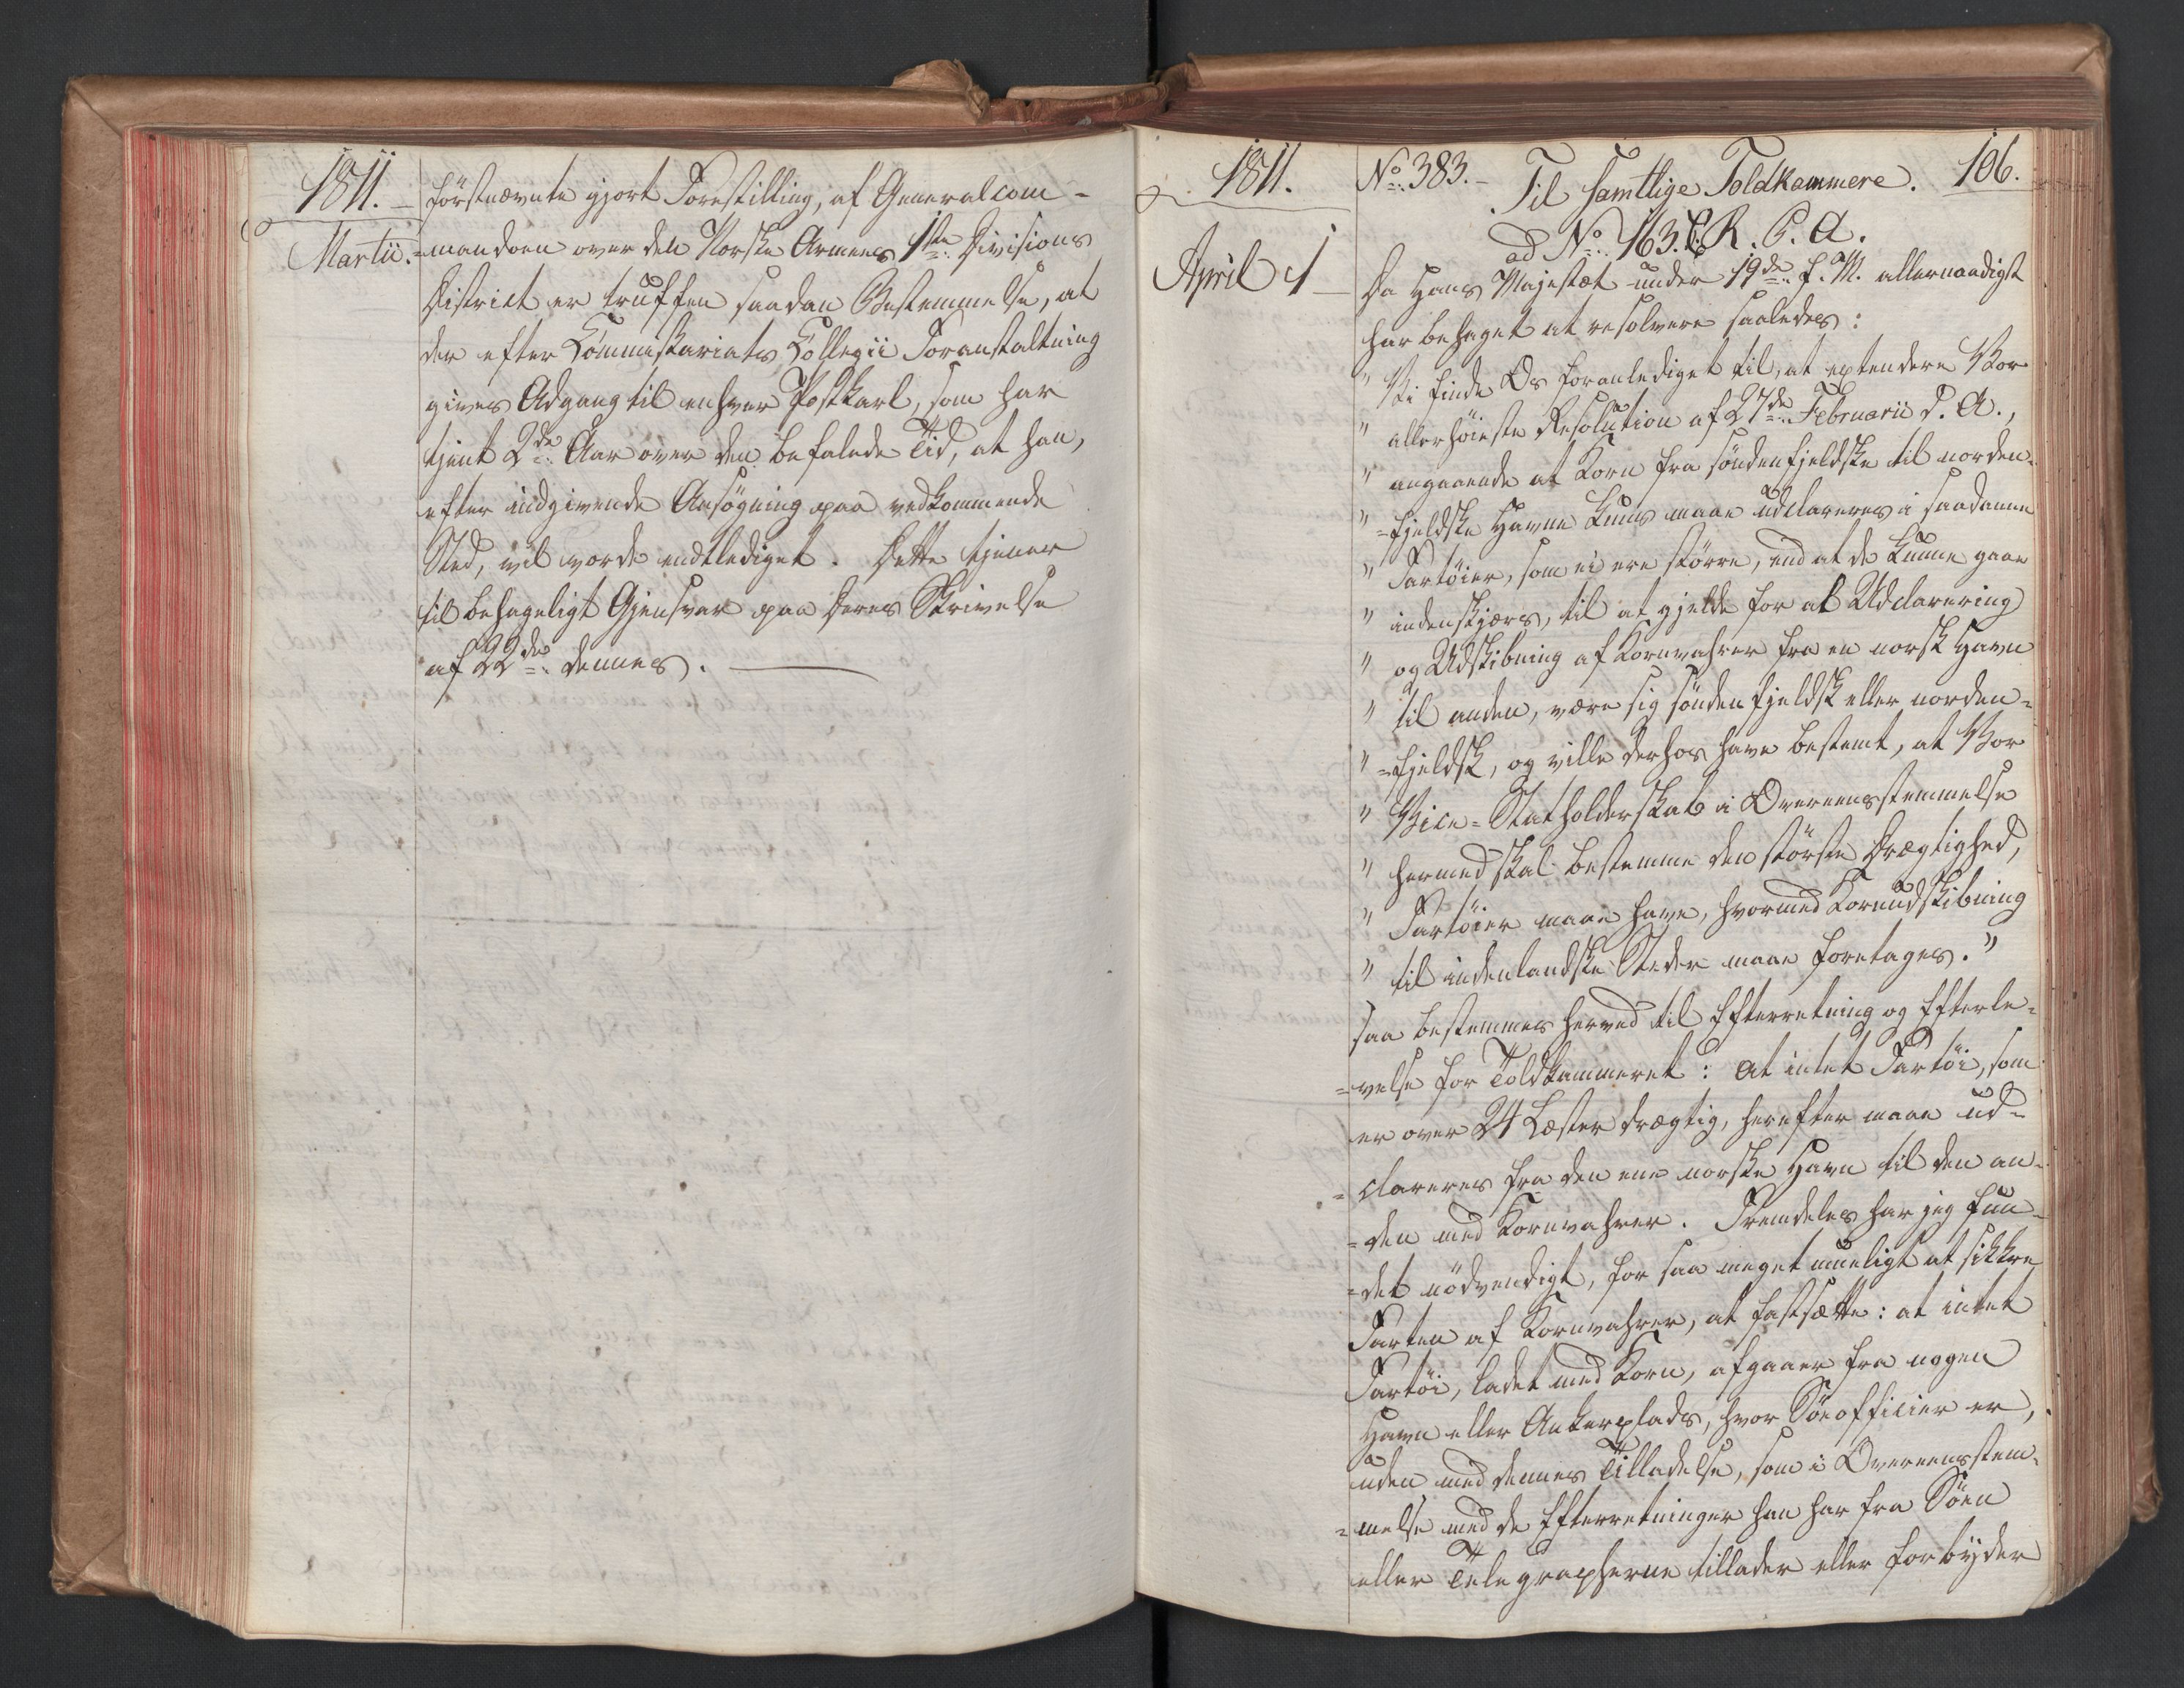 1811.
Martii.
förstnævnte gjort Forestilling, af Generalcom-
=mandoen over den Norske Armees 1ste Divisions
District er truffen saadan Bestemmelse, at
der efter Kommissariats Kollegii Foranstaltning
gives Adgang til enhver Postkarl, som har
tjent 2de Aar over den befalede Tid, at han,
efter indgivende Ansögning paa vedkommende
Sted, vil vorde endtlediget. Dette tjener
til behageligt Gjensvar paa Deres Skrivelse
af 22de dennes.
1811.
April 1
No 383. Til samtlige Toldkammere. 106.
ad No 463. R. P. A.
Da Hans Majestæt under 19de f. M. allernaadigst
har behaget at resolvere saaledes:
" Vi finde Os foranlediget til, at extendere Vor
" allerhöieste Resolution af 27de Februarii d. A.,
" angaaende at Korn fra söndenfjeldske til norden-
" =fjeldske Havne kuns maae udclareres i saadanne
" Fartöier, som ei ere större, end at de kunne gaae
" indenskjærs, til at gjelde for al Udclarering
" og Udskibning af Kornvahrer fra en norsk Havn
" til anden, være sig söndenfjeldsk eller norden=
" =fjeldsk, og ville derhos have bestemt, at Vor
" Vice=Statholderskab i Overeensstemmelse
" hermed skal bestemme den störste Drægtighed,
" Fartöier maae have, hvormed Kornudskibning
" til indenlandske Steder maae foretages."
saa bestemmes herved til Efterretning og Efterle=
=velse for Toldkammeret: at intet Fartöi, som
er over 24 Læster drægtig, herefter maae ud=
=clareres fra den ene norske Havn til den an-
=den med Kornvahrer. Fremdeles har jeg fun-
=det nödvendigt, for saa meget mueligt at sikkre
Farten af Kornvahrer, at fastsætte: at intet
Fartöi, ladet med Korn, afgaaer fra nogen
Havn eller Ankerplads, hvor Söeofficier er,
uden med dennes Tilladelse, som i Overeensstem-
=melse med de Efterretninger han har fra Söen
eller Telegrapherne tillader eller forbyder